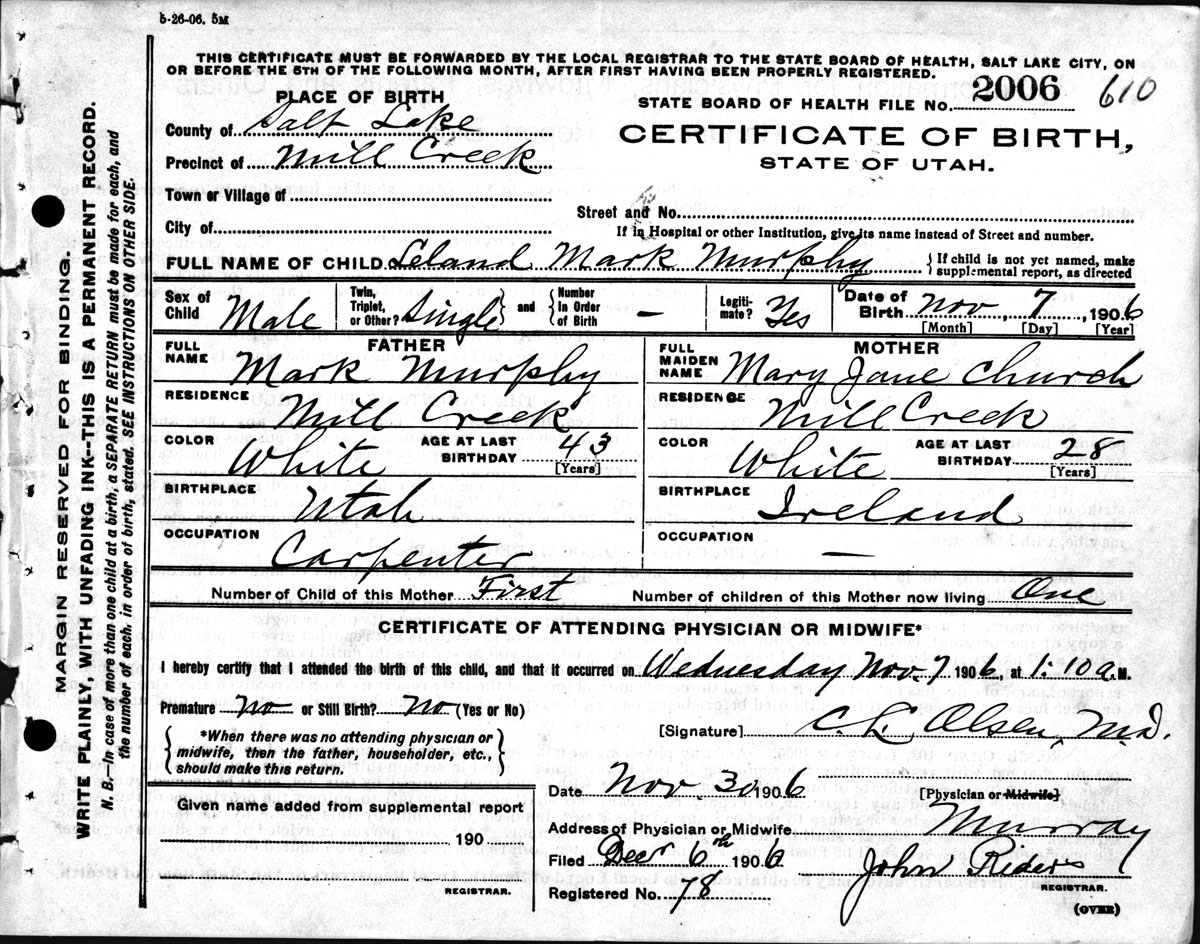 5-26-06. 5M
THIS CERTIFICATE MUST BE FORWARDED BY THE LOCAL REGISTRAR TO THE STATE BOARD OF HEALTH, SALT LAKE CITY, ON
OR BEFORE THE 5TH OF THE FOLLOWING MONTH, AFTER FIRST HAVING BEEN PROPERLY REGISTERED.
PLACE OF BIRTH
STATE BOARD OF HEALTH FILE NO. 2006 610
County of Salt Lake
CERTIFICATE OF BIRTH,
Precinct of Mill Creek
STATE OF UTAH.
Town or Village of
Street and No.
City of
If in Hospital or other Institution, give its name instead of Street and number.
FULL NAME OF CHILD Leland Mark Murphy { If child is not yet named, make
supplemental report, as directed
Sex of Child Male
Twin, Triplet, or Other? Single } and { Number In Order of Birth –
Legiti-mate? Yes
Date of Birth Nov, 7, 1906
[Month] [Day] [Year]
FATHER
FULL NAME Mark Murphy
RESIDENCE Mill Creek
COLOR White AGE AT LAST BIRTHDAY 43
[Years]
BIRTHPLACE Utah
OCCUPATION Carpenter
MOTHER
FULL MAIDEN NAME Mary Jane Church
RESIDENCE Mill Creek
COLOR White AGE AT LAST BIRTHDAY 28
[Years]
BIRTHPLACE Ireland
OCCUPATION —
Number of Child of this Mother First Number of children of this Mother now living One
CERTIFICATE OF ATTENDING PHYSICIAN OR MIDWIFE*
I hereby certify that I attended the birth of this child, and that it occurred on Wednesday Nov. 7 1906, at 1:10 a. M.
Premature No or Still Birth? No (Yes or No)
[Signature] C. L. Olsen, M.D.
*When there was no attending physician or
midwife, then the father, householder, etc.,
should make this return.
Date Nov 30 1906 [Physician or Midwife]
Given name added from supplemental report
190
REGISTRAR.
Address of Physician or Midwife Murray
Filed Decr 6th 1906 John Riders
REGISTRAR.
Registered No. 78
(OVER)
MARGIN RESERVED FOR BINDING.
WRITE PLAINLY, WITH UNFADING INK--THIS IS A PERMANENT RECORD.
N. B.—In case of more than one child at a birth, a SEPARATE RETURN must be made for each, and
the number of each, in order of birth, stated. SEE INSTRUCTIONS ON OTHER SIDE.